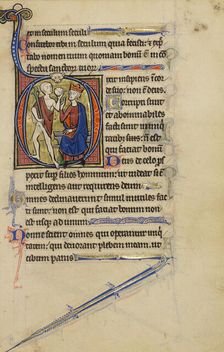 et in seculum seculi
Confitebor tibi in seculum quia fecisti: & expe
tabo nomen tuum quoniam bonum est in con
spectu sanctorum tuorum
ixit insipiens in cor
de suo: non est deus.
Corrupti sunt et
abhominabiles
facti sunt in iniqui
tatibus: non est qui
faciat bonum.
Deus de celo pros
pexit super filios hominum: ut videat si est
intelligens aut requirens deum
Omnes declinaverunt simul inutiles fac
ti sunt: non est qui faciat bonum non
est usque ad unum
Nonne scient omnes qui operantur iniqui
tatem: qui devorant plebem meam ut
cibum panis